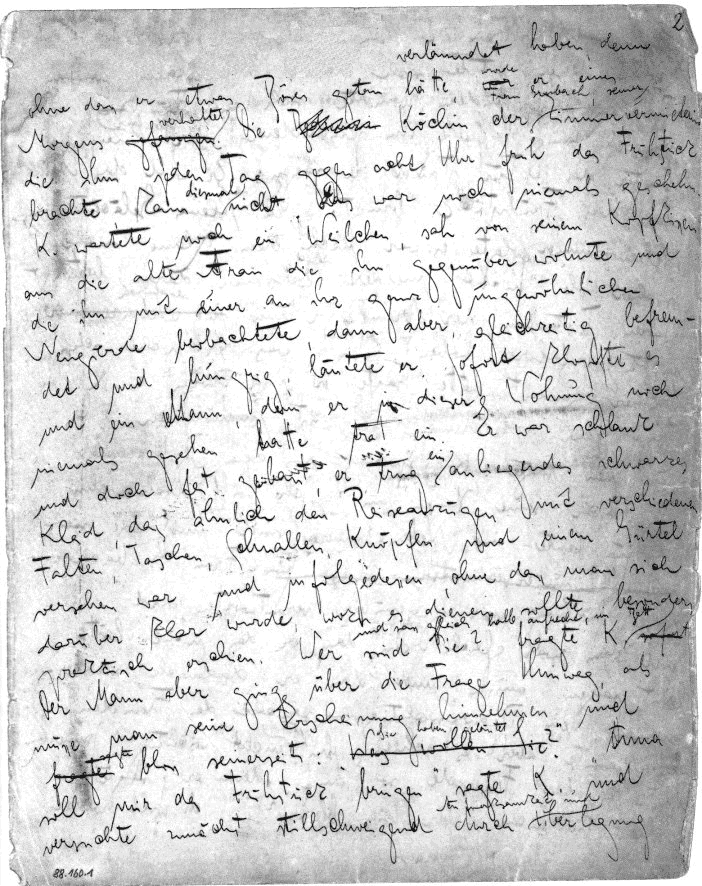 2
verläumdet haben denn
wurde
ohne dass er etwas Böses getan hätte, er eines
verhaftet Frau Grubach, seiner
Morgens gefangen. Die Köchin der Zimmervermieterin
die ihm jeden Tag gegen acht Uhr früh das Frühstück
diesmal
brachte, kam nicht. Das war noch niemals geschehn.
K. wartete noch ein Weilchen, sah von seinem Kopfkissen
aus die alte Frau die ihm gegenüber wohnte und
die ihn mit einer an ihr ganz ungewöhnlichen
Neugierde beobachtete, dann aber, gleichzeitig befrem-
det und hungrig, läutete er. Sofort klopfte es
und ein Mann, den er in dieser Wohnung noch
niemals gesehen hatte trat ein. Er war schlank
und doch fest gebaut, er trug ein anliegendes schwarzes
Kleid, das ähnlich den Reiseanzügen mit verschiedenen
Falten, Taschen, Schnallen, Knöpfen und einem Gürtel
versehen war und infolgedessen, ohne dass man sich
darüber klar wurde, wozu es dienen sollte, besonders
und sass gleich halb aufrecht im Bett
praktisch erschien. Wer sind Sie? fragte K.
Der Mann aber ging über die Frage hinweg, als
müsse man seine Erscheinung hinnehmen und
sagte Sie haben geläutet
fragte bloss seinerseits: Was wollen Sie?" "Anna
soll mir das Frühstück bringen" sagte K. und
versuchte zunächst stillschweigend durch Überlegung
88.160.1